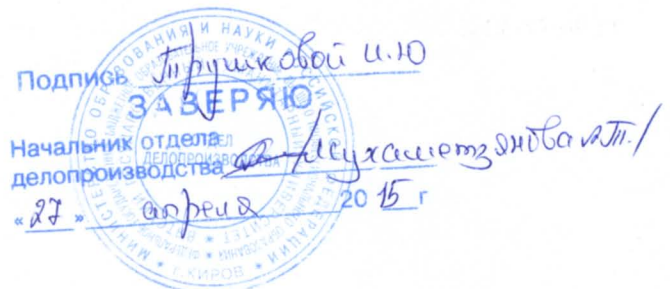 Подпись Трушковой И.Ю
ЗАВЕРЯЮ
Начальник отдела
делопроизводства /Мухаметзянова А.Т./
«27» апреля 2015 г
МИНИСТЕРСТВО ОБРАЗОВАНИЯ И НАУКИ РОССИЙСКОЙ ФЕДЕРАЦИИ
ОТДЕЛ
ДЕЛОПРОИЗВОДСТВА
* г.КИРОВ *